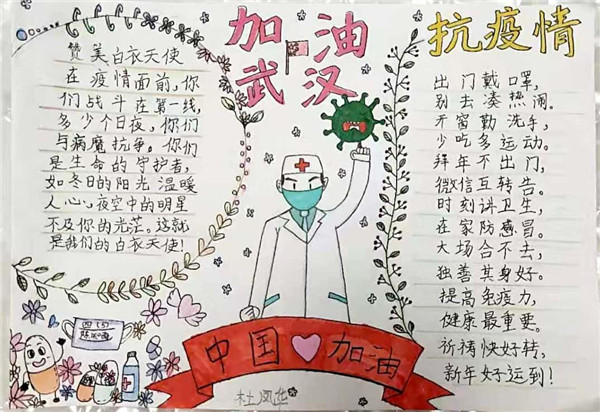 赞美白衣天使
在疫情面前,你
们战斗在第一线,
多少个日夜,你们
与病魔抗争。你们
是生命的守护者,
如冬日的阳光温暖
人心,夜空中的明星
不及你的光芒。这就
是我们的白衣天使!
加油
武汉
抗疫情
出门戴口罩,
别去凑热闹。
开窗勤洗手,
少吃多运动。
拜年不出门,
微信互转告。
时刻讲卫生,
在家防感冒。
大场合不去,
独善其身好。
提高免疫力,
健康最重要。
祈祷快好转,
新年好运到!
四(5)
中国加油